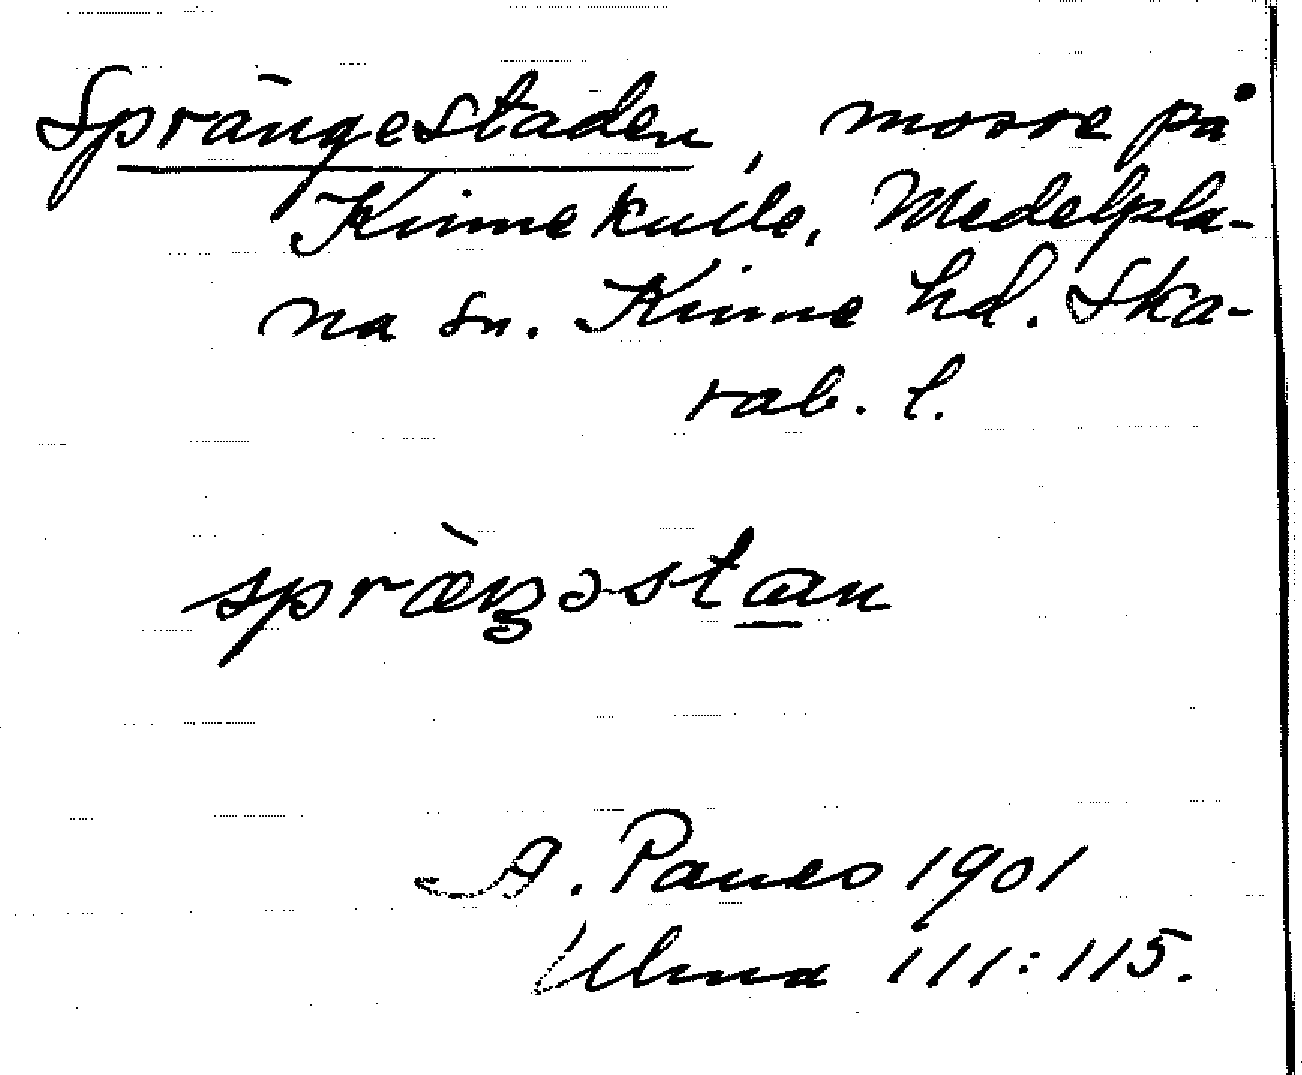 Sprängestaden, mosse på
Kinnekulle, Medelpla-
na sn. Kinne hd. Ska-
rab. l.
spræ̀ŋəstan
A. Paues 1901
Ulma 111:115.